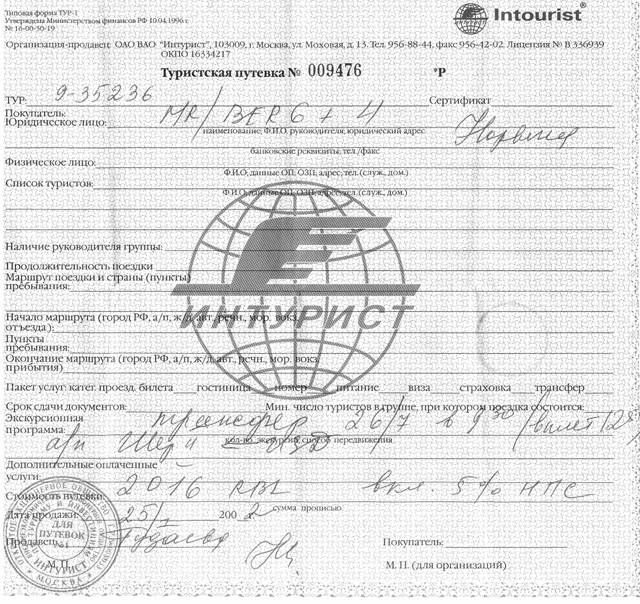 Типовая форма ТУР-1
Утверждена Министерством финансов РФ 10.04.1996 г.
№ 16-00-30-19
Intourist®
Организация-продавец ОАО ВАО "Интурист", 103009, г. Москва, ул. Моховая, д. 13. Тел. 956-88-44, факс 956-42-02. Лицензия № В 336939
ОКПО 16334217
Туристская путевка № 009476 *Р
ТУР: 9-35236 Сертификат
Покупатель:
Юридическое лицо: MR/BERG + 4
наименование; Ф.И.О. руководителя; юридический адрес
банковские реквизиты; тел./факс
Физическое лицо:
Ф.И.О; данные ОП; ОЗП; адрес; тел. (служ., дом.)
Список туристов:
Ф.И.О; данные ОП; ОЗП; адрес; тел. (служ., дом.)
Наличие руководителя группы:
Продолжительность поездки
Маршрут поездки и страны (пункты)
пребывания:
ИНТУРИСТ
Начало маршрута (город РФ, а/п, ж/д, авт., речн., мор. вокз.
отъезда):
Пункты
пребывания:
Окончание маршрута (город РФ, а/п, ж/д, авт., речн., мор. вокз.
прибытия)
Пакет услуг: катег. проезд. билета гостиница номер питание виза страховка трансфер
Срок сдачи документов: Мин. число туристов в группе, при котором поездка состоится:
Экскурсионная
программа: трансфер 26/7 в 9 30 /вылет
а/п Шер II
кол-во экскурсий, способ передвижения
Дополнительно оплаченные
услуги:
Стоимость путевки: 2016 вкл. 5% НПС
сумма прописью
Дата продажи: 25/ 200 2
Продавец:
Покупатель:
М. П.
М. П. (для организаций)
ДЛЯ
ПУТЕВОК
№1
ИНТУРИСТ
МОСКВА